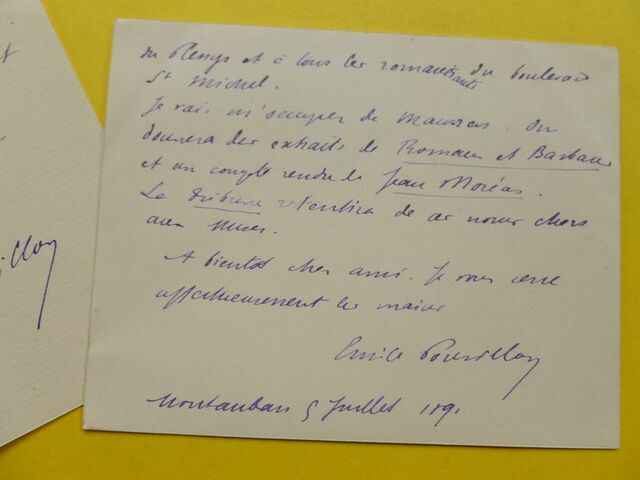 du Plessys et à tous les romanisants du boulevard
St Michel.
Je vais m'occuper de Maurras. On
donnera des extraits de Romans et Barbares
et un compte rendu de Jean Moréas.
La Tribune retentira de ces noms chers
aux Muses.
A bientôt cher ami. Je vous serre
affectueusement les mains
Emile Pouvillon
Montauban 5 Juillet 1891